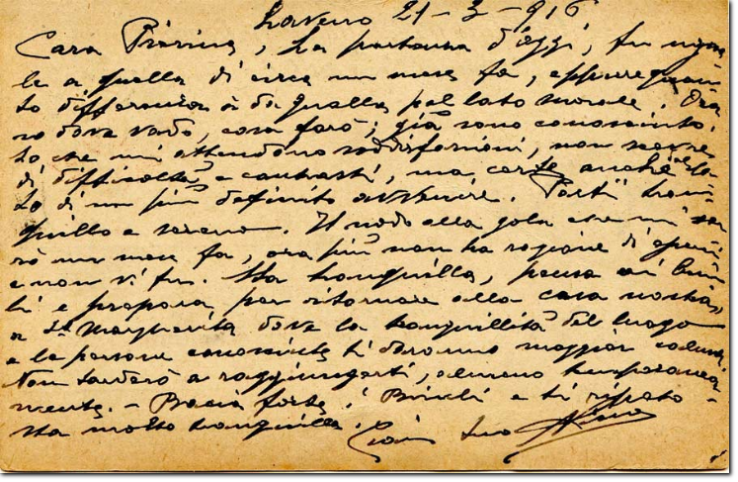 Laveno 21-3-916
Cara Pierina, La partenza d'oggi, fu ugua-
le a quella di circa un mese fa, eppure quan-
ta differenza è da quella pel lato morale. Ora
so dove vado, cosa farò; già sono conosciuto.
So che mi attendono soddisfazioni, non scevre
di difficoltà e contrasti, ma certe anche la
to di un più definito avvenire. Partii tran-
quillo e sereno. Il nodo alla gola che mi ser
rò un mese fa, ora più non ha ragione di
e non vi fu. Sta tranquilla, pensa ai bim-
bi e prepara per ritornare alla casa nostra,
a Sta Margherita dove la tranquillità del luogo
e le persone conosciute ti daranno maggior calma.
Non tarderò a raggiungerti, almeno temporanea-
mente. - Bacia forte i Bimbi e ti ripeto
sta molto tranquilla. Ciao Tuo